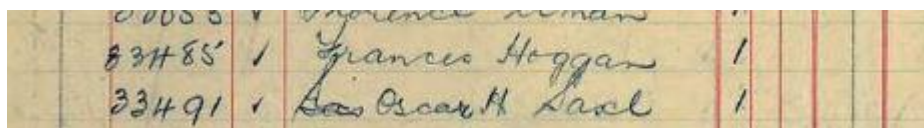 Florence
33485 ✓ Frances Hoggan 1
33491 ✓ Oscar H Saxl 1